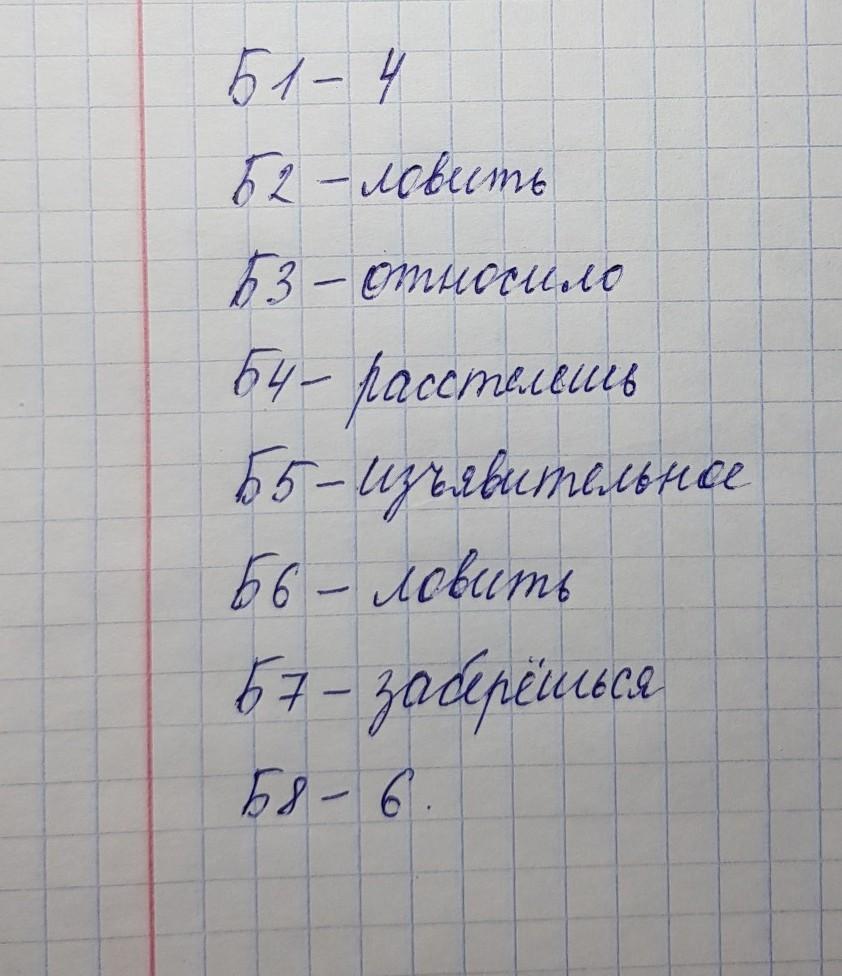 Б1 – 4
Б2 – ловить
Б3 – относило
Б4 – расстелешь
Б5 – изъявительное
Б6 – ловить
Б7 – заберёшься
Б8 – 6.